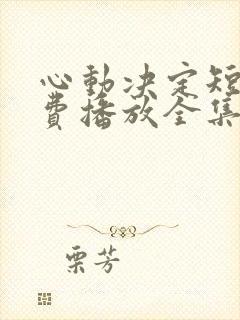 心動决定短
費播放全集
栗芳